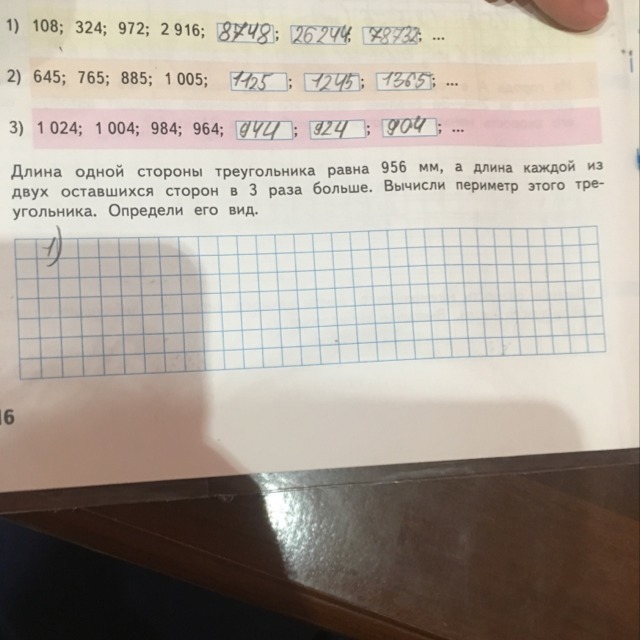 1) 108; 324; 972; 2 916; 8748; 26244; 78732; ...
2) 645; 765; 885; 1 005; 1125; 1245; 1365; ...
3) 1 024; 1 004; 984; 964; 944; 924; 904; ...
Длина одной стороны треугольника равна 956 мм, а длина каждой из
двух оставшихся сторон в 3 раза больше. Вычисли периметр этого тре-
угольника. Определи его вид.
1)
16